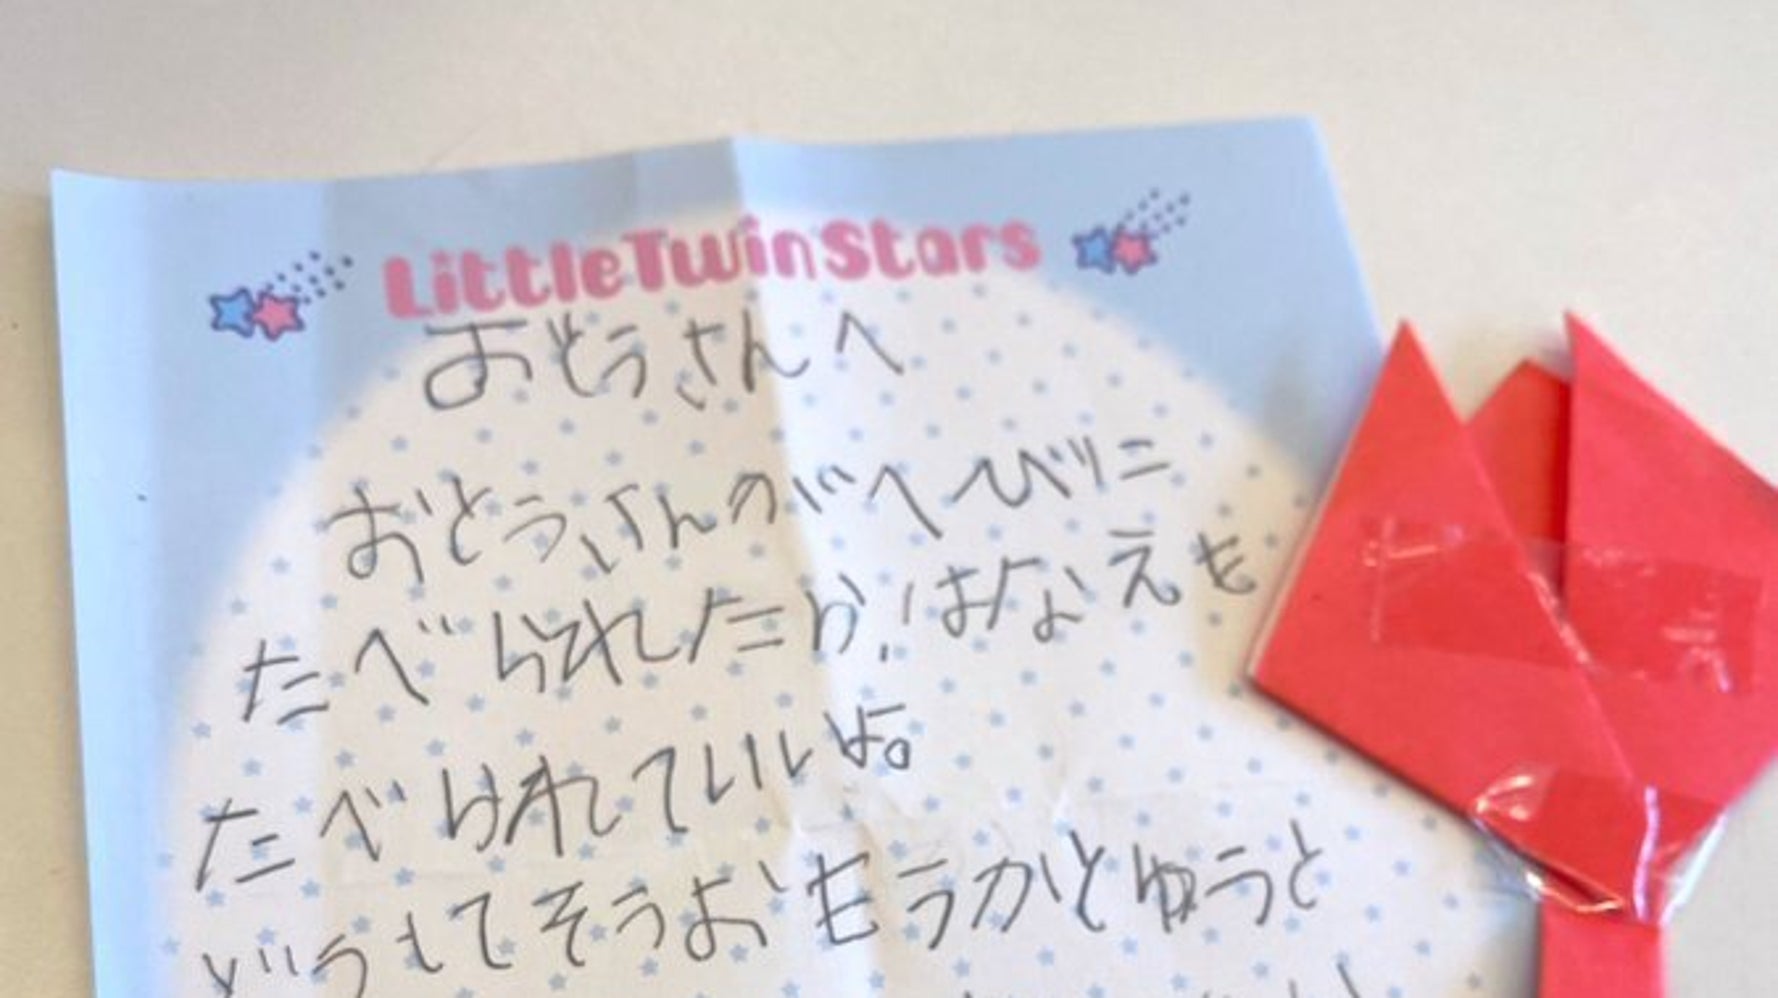 LittleTwinStars
おとうさんへ
おとうさんがへびに
たべられたら、はなえも
たべられていいよ。
どうしてそうおもうかとゆうと